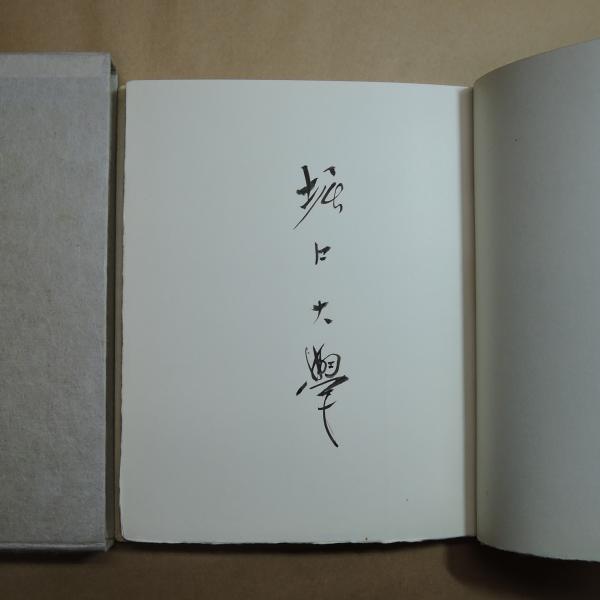 堀口大學